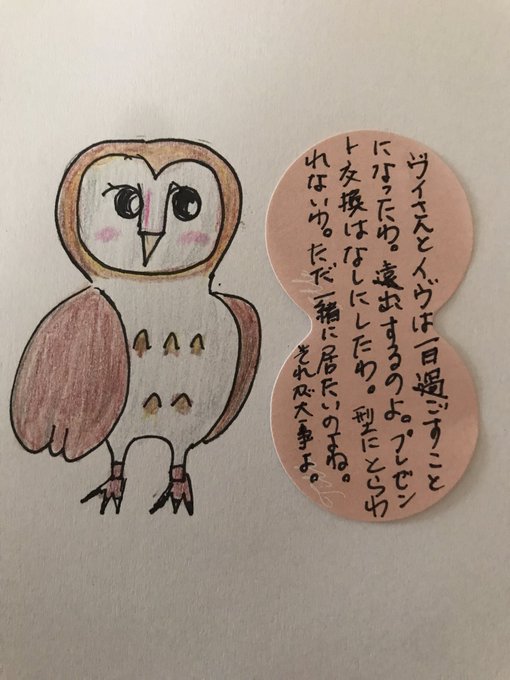 ヴイさんとイヴは一日過ごすこと
になったわ。遠出するのよ。プレゼン
ト交換はなしにしたわ。型にとらわ
れないわ。ただ一緒に居たいのよね。
それが大事よ。